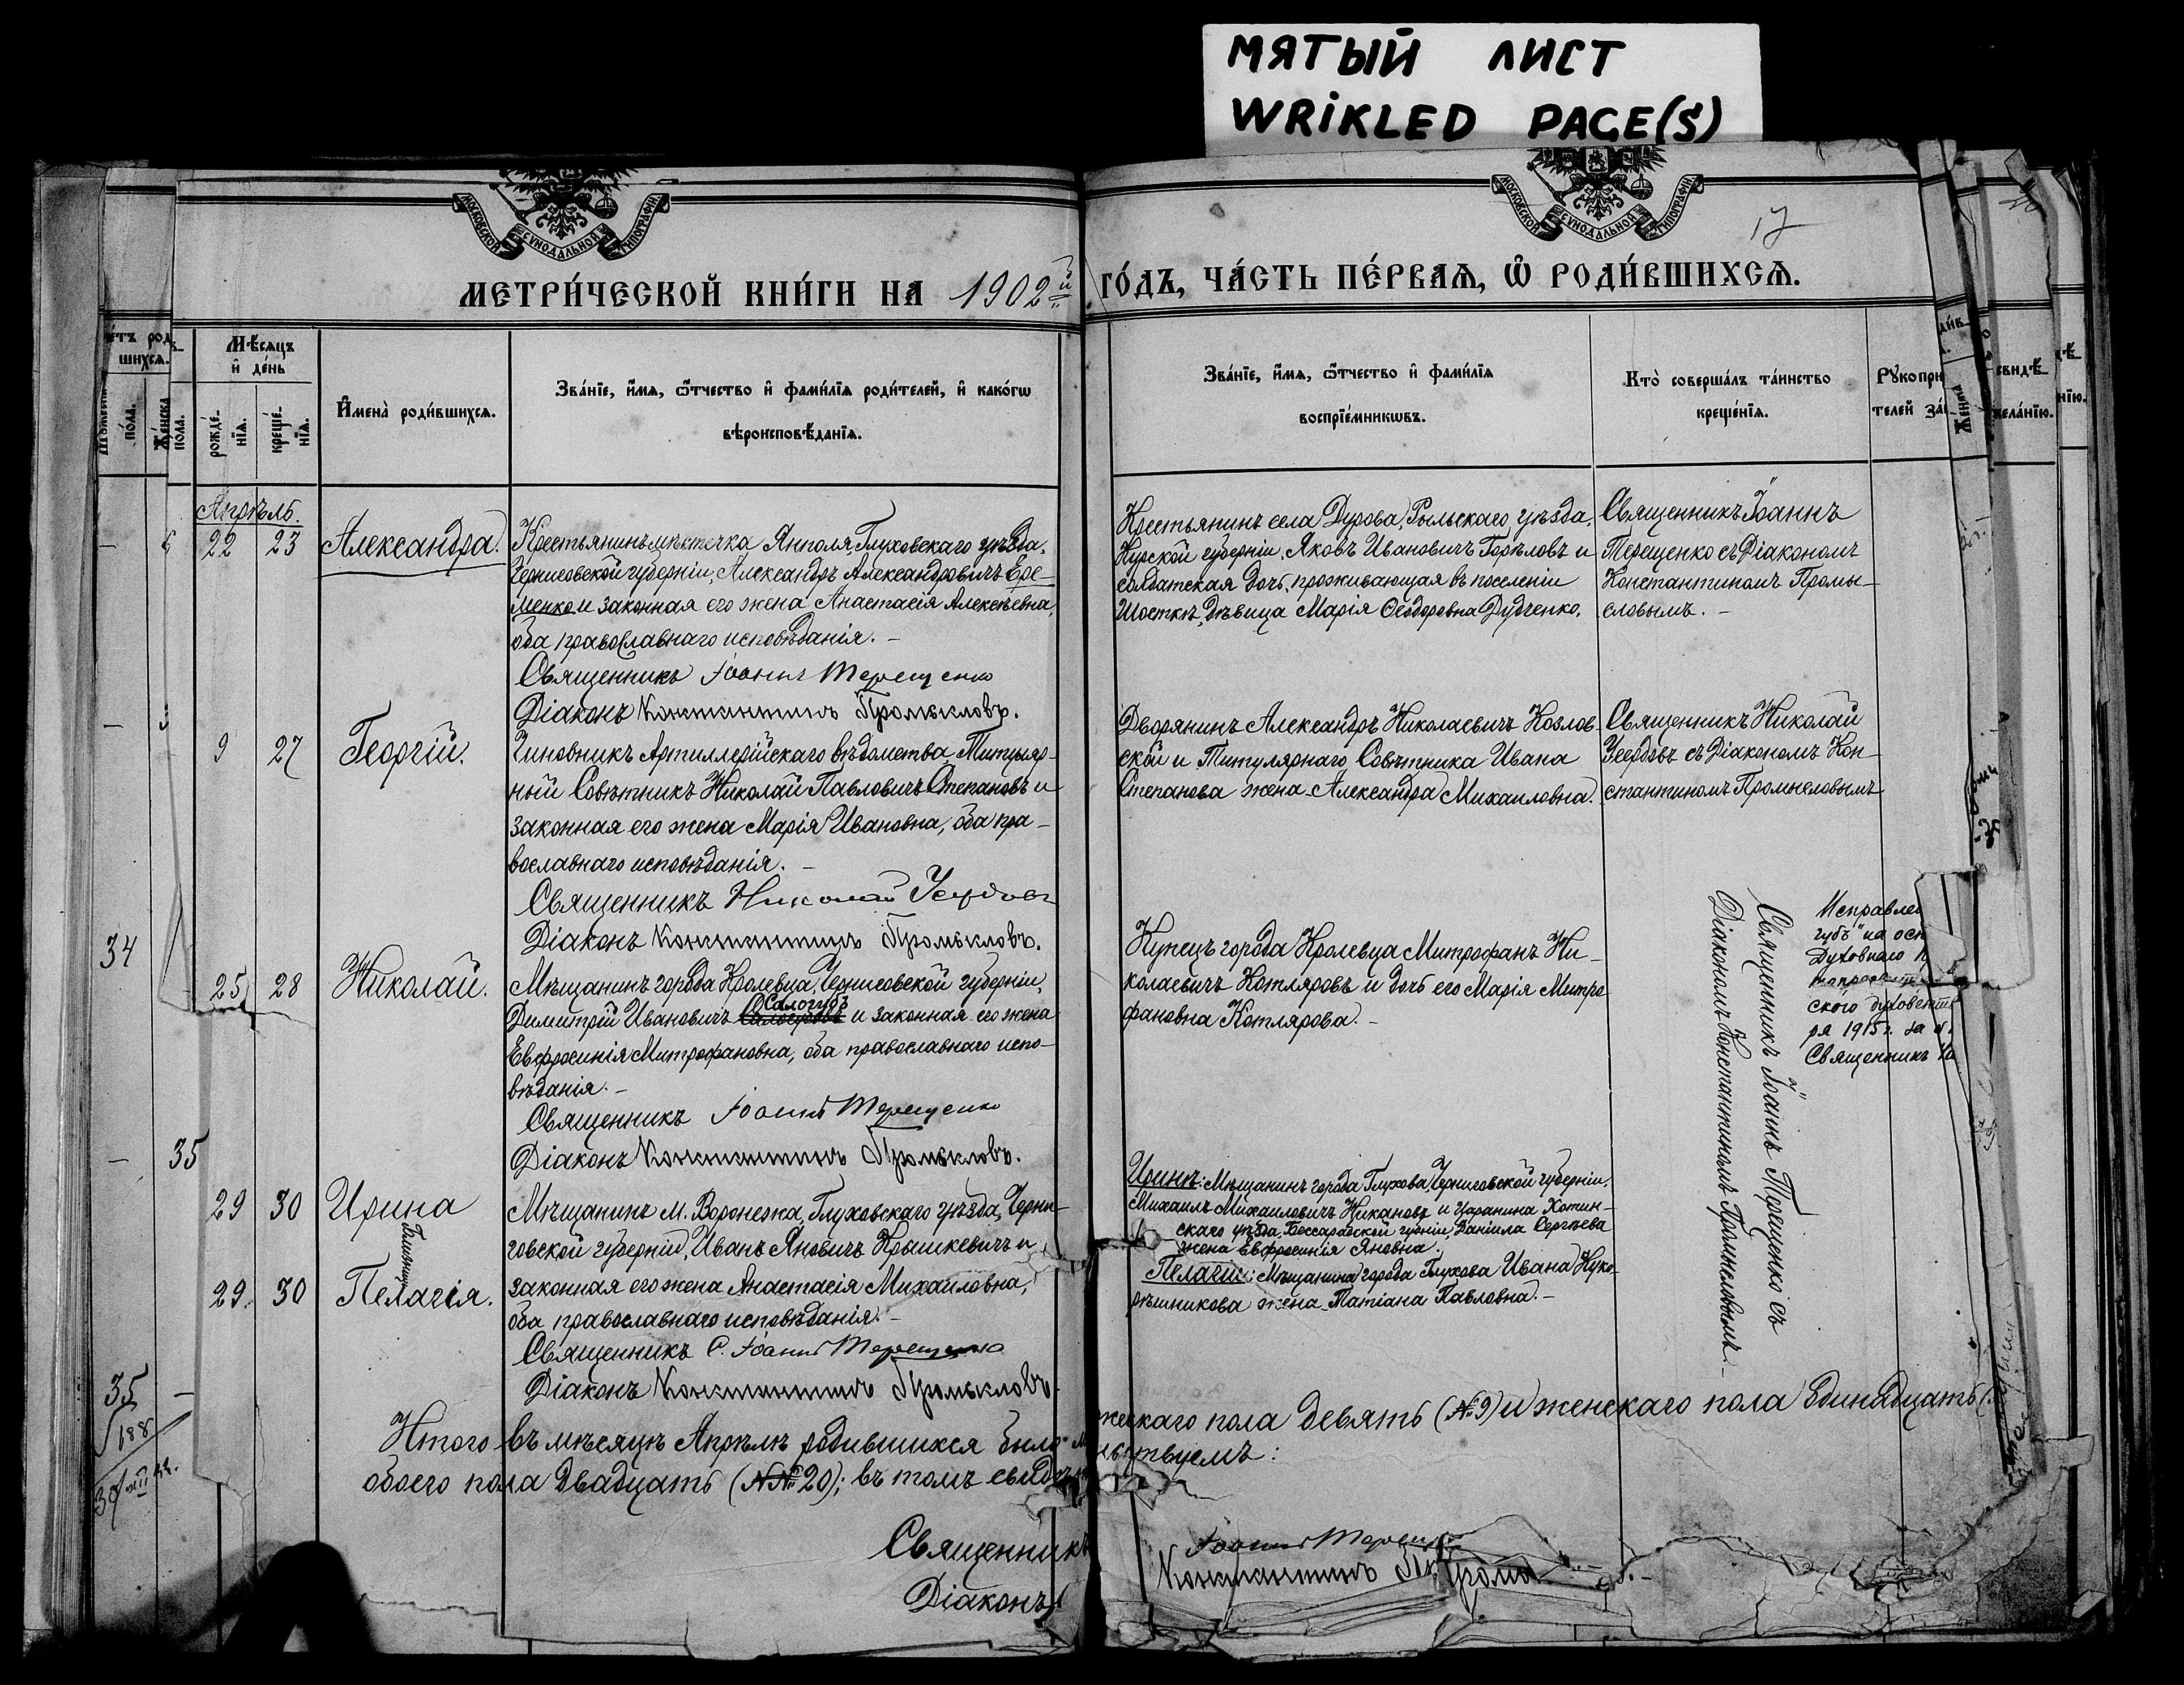 МЯТЫЙ ЛИСТ
WRiKLED PAGE(S)
МОСКОВСКОЙ СѴНОДАЛЬНОЙ ТИПОГРАФІИ
МОСКОВСКОЙ СѴНОДАЛЬНОЙ ТИПОГРАФІИ
17
МЕТРИ́ЧЕСКОЙ КНИ́ГИ НА 1902й ГО́ДЪ, ЧА́СТЬ ПЕ́РВАѦ, Ѿ РОДИ́ВШИХСѦ.
Мѣ́сяцъ и҆ де́нь
рожде́нїѧ.
креще́нїѧ.
И҆мена̀ роди́вшихсѧ.
Зва́нїе, и҆́мѧ, ѻ҆́тчество и҆ фами́лїѧ роди́телей, и҆ како́гѡ
вѣроисповѣ́данїѧ.
Зва́нїе, и҆́мѧ, ѻ҆́тчество и҆ фами́лїѧ
воспрїе́мникѡвъ.
Кто̀ соверша́лъ та́инство
креще́нїѧ.
Апрѣль.
22 23 Александра.
Крестьянинъ мѣстечка Ямполя, Глуховскаго уѣзда,
Черниговской губерніи, Александръ Александровичъ Ере-
менко и законная его жена Анастасія Алексѣевна,
оба православнаго исповѣданія. –
Священникъ Іоаннъ Терещенко
Діаконъ Константинъ Промысловъ.
Крестьянинъ села Дурова, Рыльскаго уѣзда,
Курской губерніи, Яковъ Ивановичъ Горѣловъ и
солдатская дочь, проживающая въ поселеніи
Шосткѣ, дѣвица Марія Ѳеодоровна Дудченко.
Священникъ Іоаннъ
Терещенко съ Діакономъ
Константиномъ Промы-
словымъ. –
9 27 Георгій.
Чиновникъ Артиллерійскаго вѣдомства, Титуляр-
ный Совѣтникъ Николай Павловичъ Степановъ и
законная его жена Марія Ивановна, оба пра-
вославнаго исповѣданія. –
Священникъ Николай
Діаконъ Константинъ Промысловъ.
Дворянинъ Александръ Николаевичъ Козлов-
скій и Титулярнаго Совѣтника Ивана
Степанова жена Александра Михаиловна.
Священникъ Николай
съ Діакономъ Кон-
стантиномъ Промысловымъ
34
25 28 Николай.
Мѣщанинъ города Кролевца, Черниговской губерніи,
Салогубъ
Димитрій Ивановичъ и законная его жена
Евфросинія Митрофановна, оба православнаго испо-
вѣданія. –
Священникъ Іоаннъ Терещенко
Діаконъ Константинъ Промысловъ.
Купецъ города Кролевца Митрофанъ Ни-
колаевичъ Котляровъ и дочь его Марія Митро-
фановна Котлярова. –
Священникъ Іоаннъ Терещенко съ
Діакономъ Константиномъ Промысловымъ. –
Исправлен
губъ" на осн
Духовнаго
ского духовенств
ря 1915 г. за №
Священникъ
35
29 30 Ирина
Близнецы
29. 30 Пелагія.
Мѣщанинъ м. Воронежа, Глуховскаго уѣзда, Черни-
говской губерніи, Иванъ Яновичъ Крашкевичъ и
законная его жена Анастасія Михаиловна,
оба православнаго исповѣданія. –
Священникъ С. Іоаннъ Терещенко
Діаконъ Константинъ Промысловъ.
Ирины: Мѣщанинъ города Глухова, Черниговской губерніи,
Михаилъ Михаиловичъ Никановъ и Царанина Хотин-
скаго уѣзда, Бессарабской губерніи, Даніила Сергѣева
жена Евфросинія Яновна.
Пелагіи: Мѣщанина города Глухова Ивана
жена Татіана Павловна. –
35
Итого въ мѣсяцѣ Апрѣлѣ родившихся было мужескаго пола девять (№ 9) и женскаго пола одинадцать
обоего пола двадцать (№№ 20); въ томъ свидѣтельствуемъ:
Священникъ Іоаннъ
Діаконъ Константинъ